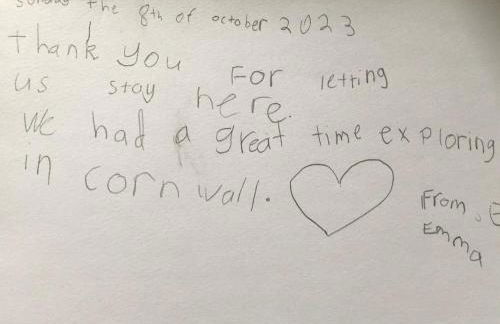 sunday the 8th of october 2023
thank you For letting
us stay here.
We had a great time exploring
in cornwall.
From. E
Emma